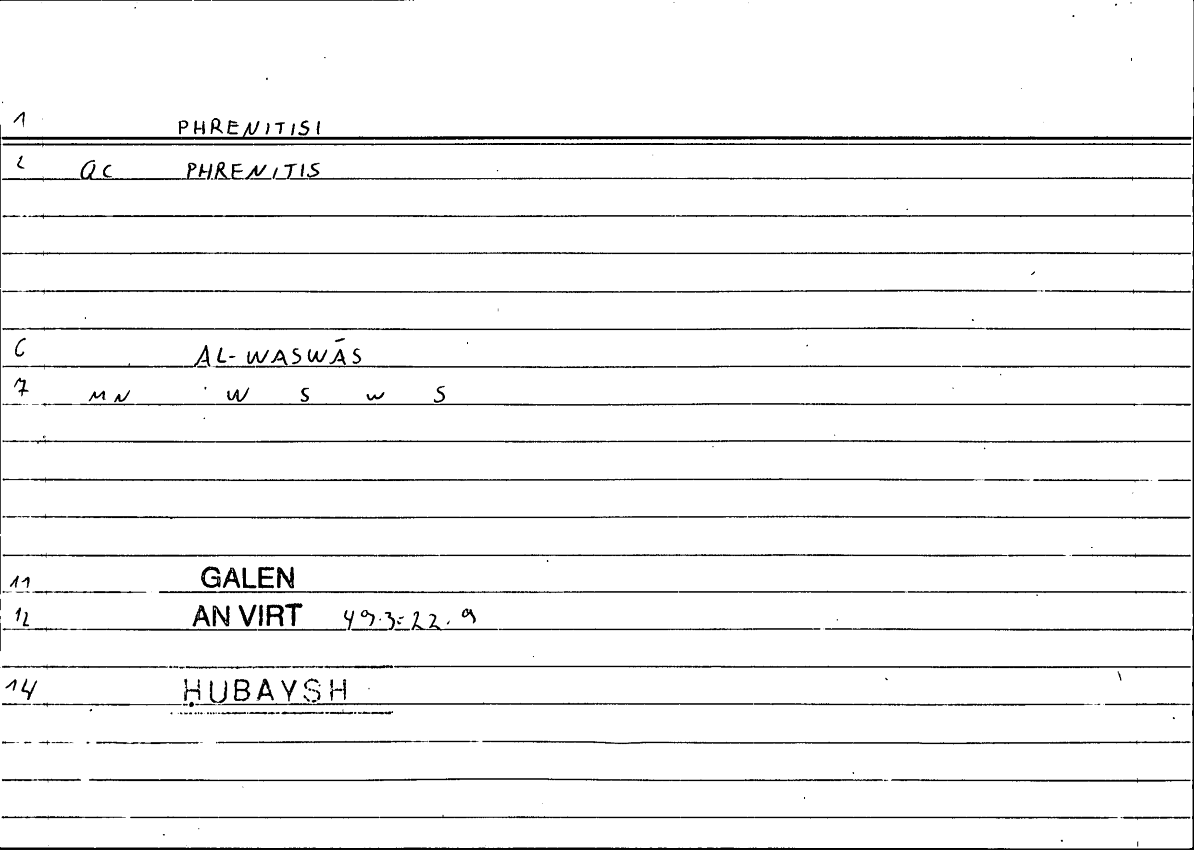 1 PHRENITISI
2 QC PHRENITIS
6 AL-WASWĀS
7 MN W S W S
11 GALEN
12 AN VIRT 49.3=22.9
14 ḤUBAYSH